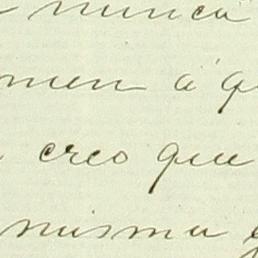 nunca
men á q
creo que
misma